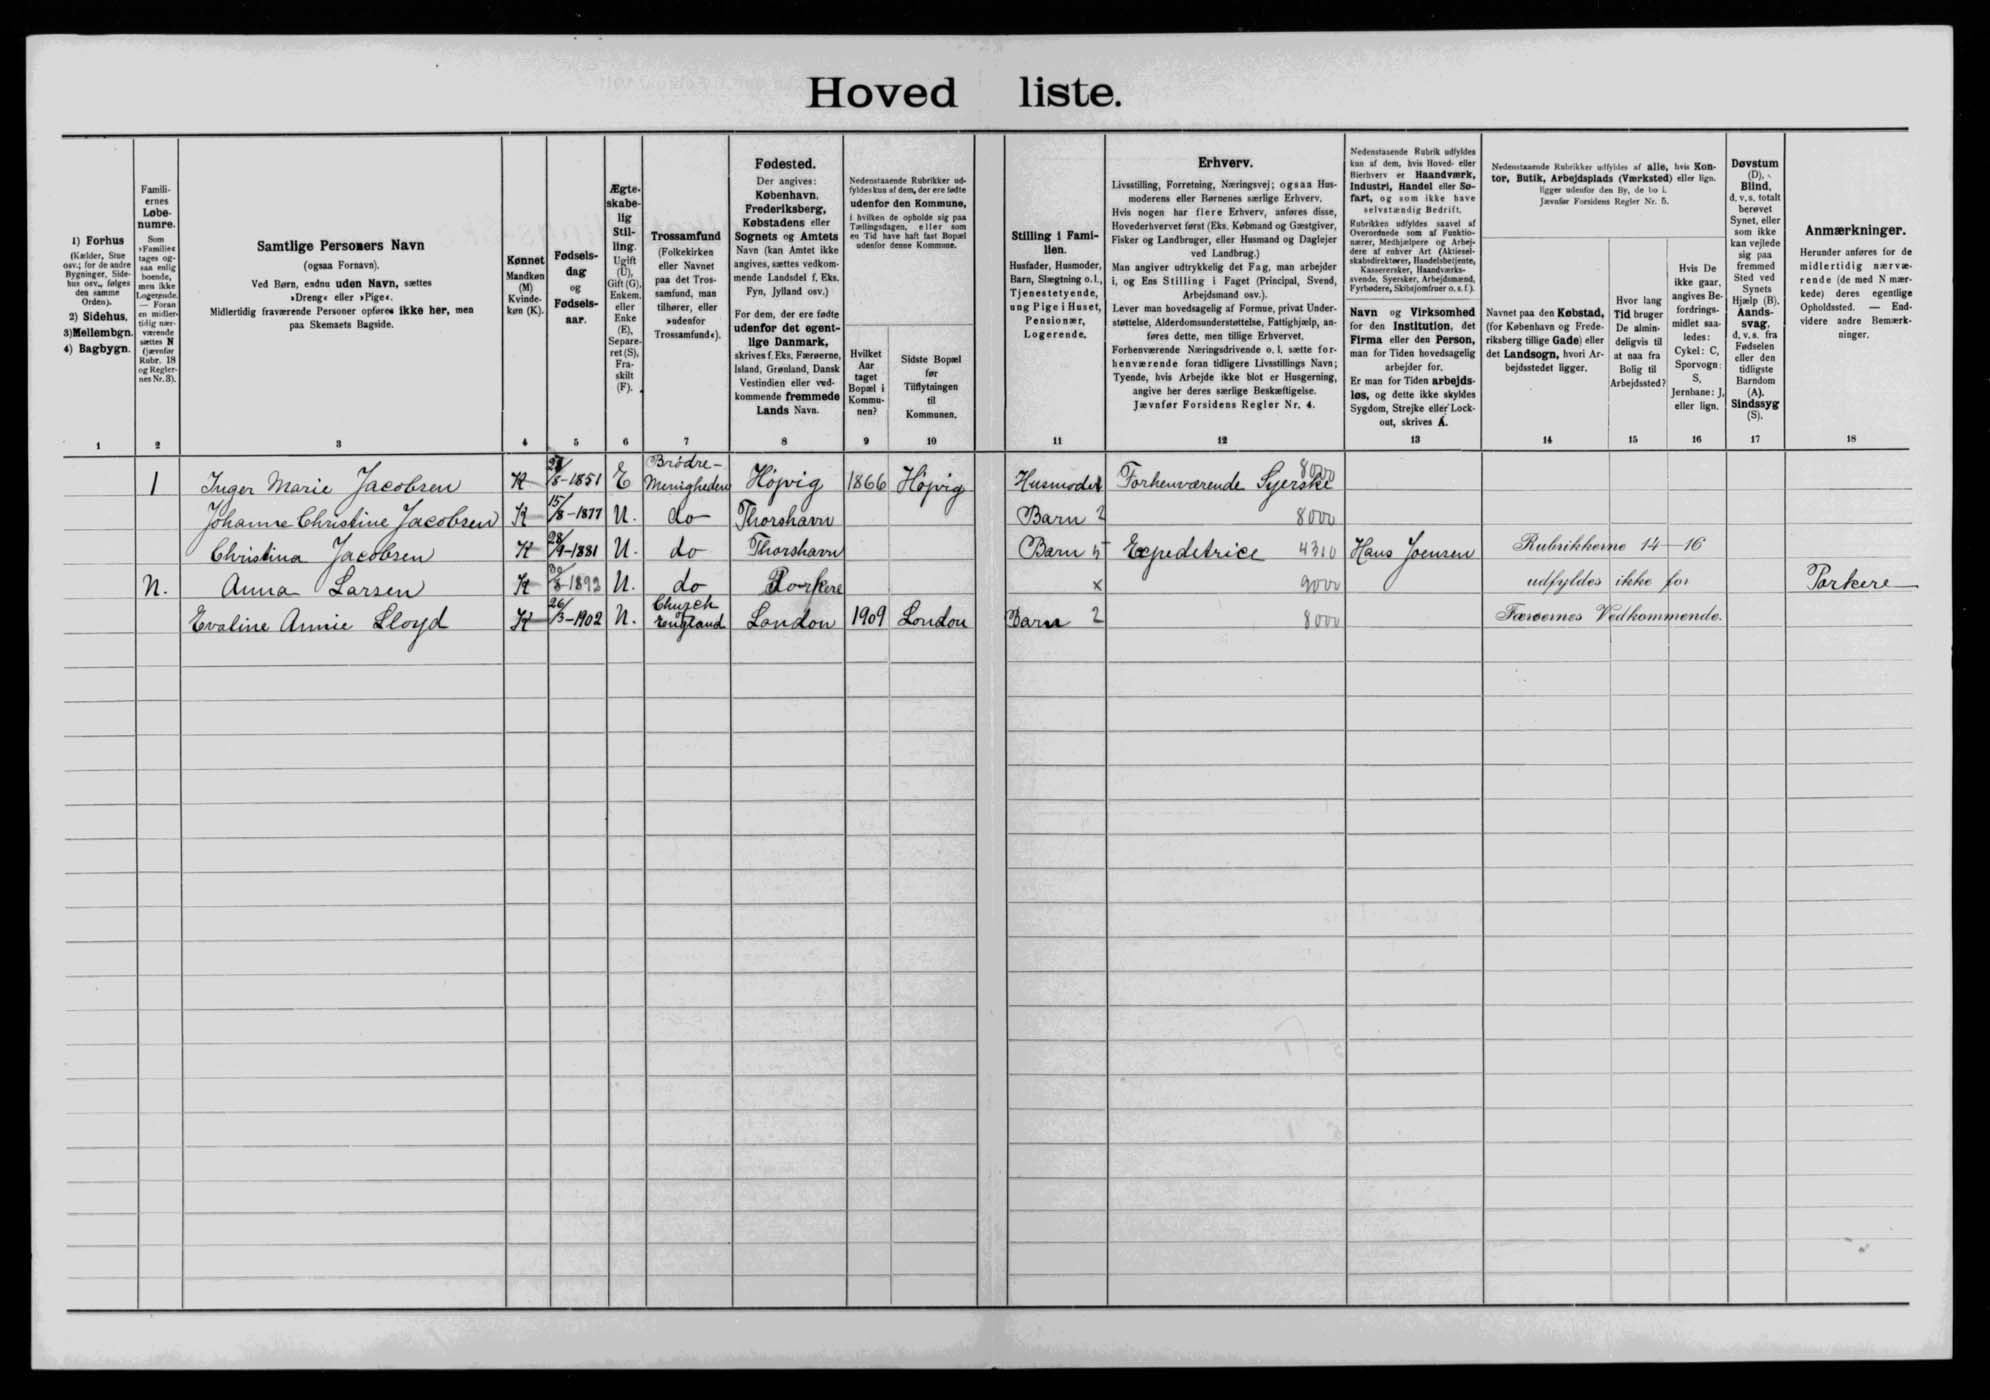 Hoved liste.
1) Forhus
(Kælder, Stue
osv.; for de andre
Bygninger, Side-
hus osv., følges
den samme
Orden).
2) Sidehus,
3) Mellembgn.
4) Bagbygn.
Famili-
ernes
Løbe-
numre.
Som
»Familie«
tages og-
saa enlig
boende,
men ikke
Logerende.
— Foran
en midler-
tidig nær-
værende
sættes N
(jævnfør
Rubr. 18
og Regler-
nes Nr. 3).
Samtlige Personers Navn
(ogsaa Fornavn).
Ved Børn, endnu uden Navn, sættes
»Dreng« eller »Pige«.
Midlertidig fraværende Personer opføres ikke her, men
paa Skemaets Bagside.
Kønnet
Mandkøn
(M)
Kvinde-
køn (K).
Fødsels-
dag
og
Fødsels-
aar.
Ægte-
skabe-
lig
Stil-
ling.
Ugift
(U),
Gift (G),
Enkem.
eller
Enke
(E),
Separe-
ret (S),
Fra-
skilt
(F).
Trossamfund
(Folkekirken
eller Navnet
paa det Tros-
samfund, man
tilhører, eller
»udenfor
Trossamfund«).
Fødested.
Der angives:
København,
Frederiksberg,
Købstadens eller
Sognets og Amtets
Navn (kan Amtet ikke
angives, sættes vedkom-
mende Landsdel f. Eks.
Fyn, Jylland osv.)
For dem, der ere fødte
udenfor det egent-
lige Danmark,
skrives f. Eks. Færøerne,
Island, Grønland, Dansk
Vestindien eller ved-
kommende fremmede
Lands Navn.
Nedenstaaende Rubrikker ud-
fyldes kun af dem, der ere fødte
udenfor den Kommune,
i hvilken de opholde sig paa
Tællingsdagen, eller som
en Tid have haft fast Bopæl
udenfor denne Kommune.
Hvilket
Aar
taget
Bopæl i
Kommu-
nen?
Sidste Bopæl
før
Tilflytningen
til
Kommunen.
Stilling i Fami-
lien.
Husfader, Husmoder,
Barn, Slægtning o. l.,
Tjenestetyende,
ung Pige i Huset,
Pensionær,
Logerende.
Erhverv.
Livsstilling, Forretning, Næringsvej; ogsaa Hus-
moderens eller Børnenes særlige Erhverv.
Hvis nogen har flere Erhverv, anføres disse,
Hovederhvervet først (Eks. Købmand og Gæstgiver,
Fisker og Landbruger, eller Husmand og Daglejer
ved Landbrug.)
Man angiver udtrykkelig det Fag, man arbejder
i, og Ens Stilling i Faget (Principal, Svend,
Arbejdsmand osv.).
Lever man hovedsagelig af Formue, privat Under-
støttelse, Alderdomsunderstøttelse, Fattighjælp, an-
føres dette, men tillige Erhvervet.
Forhenværende Næringsdrivende o. l. sætte for-
henværende foran tidligere Livsstillings Navn;
Tyende, hvis Arbejde ikke blot er Husgerning,
angive her deres særlige Beskæftigelse.
Jævnfør Forsidens Regler Nr. 4.
Nedenstaaende Rubrik udfyldes
kun af dem, hvis Hoved- eller
Bierhverv er Haandværk,
Industri, Handel eller Sø-
fart, og som ikke have
selvstændig Bedrift.
Rubrikken udfyldes saavel af
Overordnede som af Funktio-
nærer, Medhjælpere og Arbej-
dere af enhver Art (Aktiesel-
skabsdirektører, Handelsbetjente,
Kasserersker, Haandværks-
svende, Syersker, Arbejdsmænd,
Fyrbødere, Skibsjomfruer o. s. f.).
Navn og Virksomhed
for den Institution, det
Firma eller den Person,
man for Tiden hovedsagelig
arbejder for.
Er man for Tiden arbejds-
løs, og dette ikke skyldes
Sygdom, Strejke eller Lock-
out, skrives A.
Nedenstaaende Rubrikker udfyldes af alle, hvis Kon-
tor, Butik, Arbejdsplads (Værksted) eller lign.
ligger udenfor den By, de bo i.
Jævnfør Forsidens Regler Nr. 5.
Navnet paa den Købstad,
(for København og Frede-
riksberg tillige Gade) eller
det Landsogn, hvori Ar-
bejdsstedet ligger.
Hvor lang
Tid bruger
De almin-
deligvis til
at naa fra
Bolig til
Arbejdssted?
Hvis De
ikke gaar,
angives Be-
fordrings-
midlet saa-
ledes:
Cykel: C,
Sporvogn:
S,
Jernbane: J,
eller lign.
Døvstum
(D),
Blind,
d. v. s. totalt
berøvet
Synet, eller
som ikke
kan vejlede
sig paa
fremmed
Sted ved
Synets
Hjælp (B).
Aands-
svag,
d. v. s. fra
Fødselen
eller den
tidligste
Barndom
(A).
Sindssyg
(S).
Anmærkninger.
Herunder anføres for de
midlertidig nærvæ-
rende (de med N mær-
kede) deres egentlige
Opholdssted. — End-
videre andre Bemærk-
ninger.
1 2 3 4 5 6 7 8 9 10 11 12 13 14 15 16 17 18
1 Inger Marie Jacobsen K /8-1851 E Brödre-Menigheden Höjvig 1866 Höjvig Husmoder Forhenværende Syerske 8000
Johanne Christine Jacobsen K 15/8-1877 U. do Thorshavn Barn 2 8000
Christina Jacobsen K 28/9-1881 U. do Thorshavn Barn 5 Expeditrice 4310 Hans Joensen Rubrikkerne 14-16
N. Anna Larsen K 30/8-1892 U. do Porkere x 9000 udfyldes ikke for Porkere
Evaline Annie Lloyd K 26/3-1902 U. Church England London 1909 London Barn 2 8000 Færøernes Vedkommende.